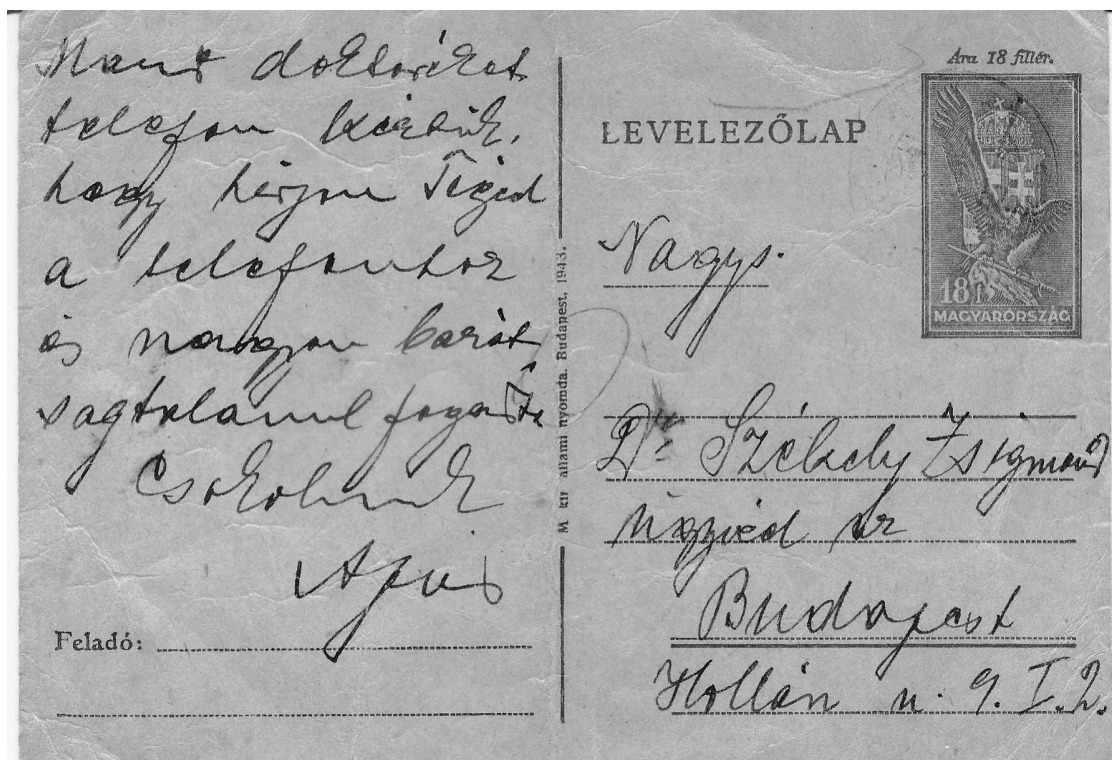 doktorékat
telefon kértük,
hogy hívjon Téged
a telefonhoz
és nagyon barát
ságtalanul fogadta
Csókolunk
Apus
Feladó:
M. kir. állami nyomda. Budapest, 1943.
Ára 18 fillér.
LEVELEZŐLAP
18 f
MAGYARORSZÁG
Nagys.
Dr. Székely Zsigmond
ügyvéd úr
Budapest
Hollán u. 9. I. 2.